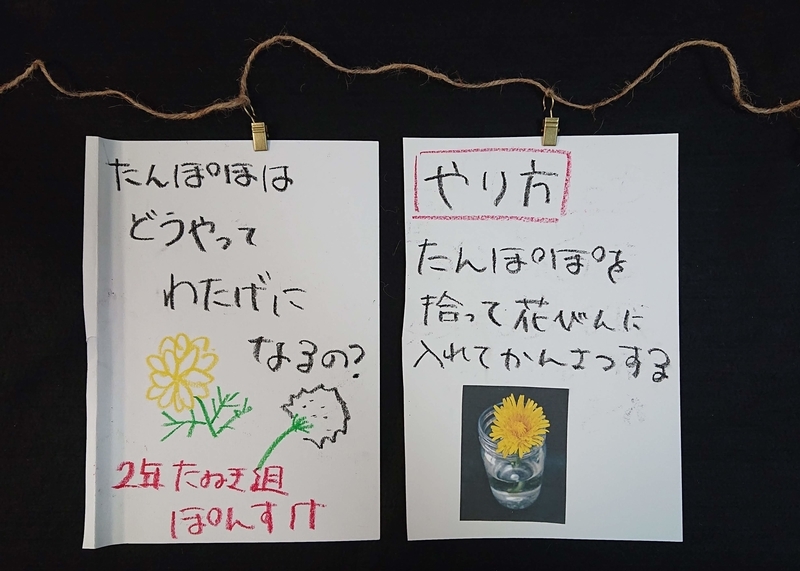 たんぽぽは
どうやって
わたげに
なるの?
2年たぬき組
ぽんすけ
やり方
たんぽぽを
拾って花びんに
入れてかんさつする